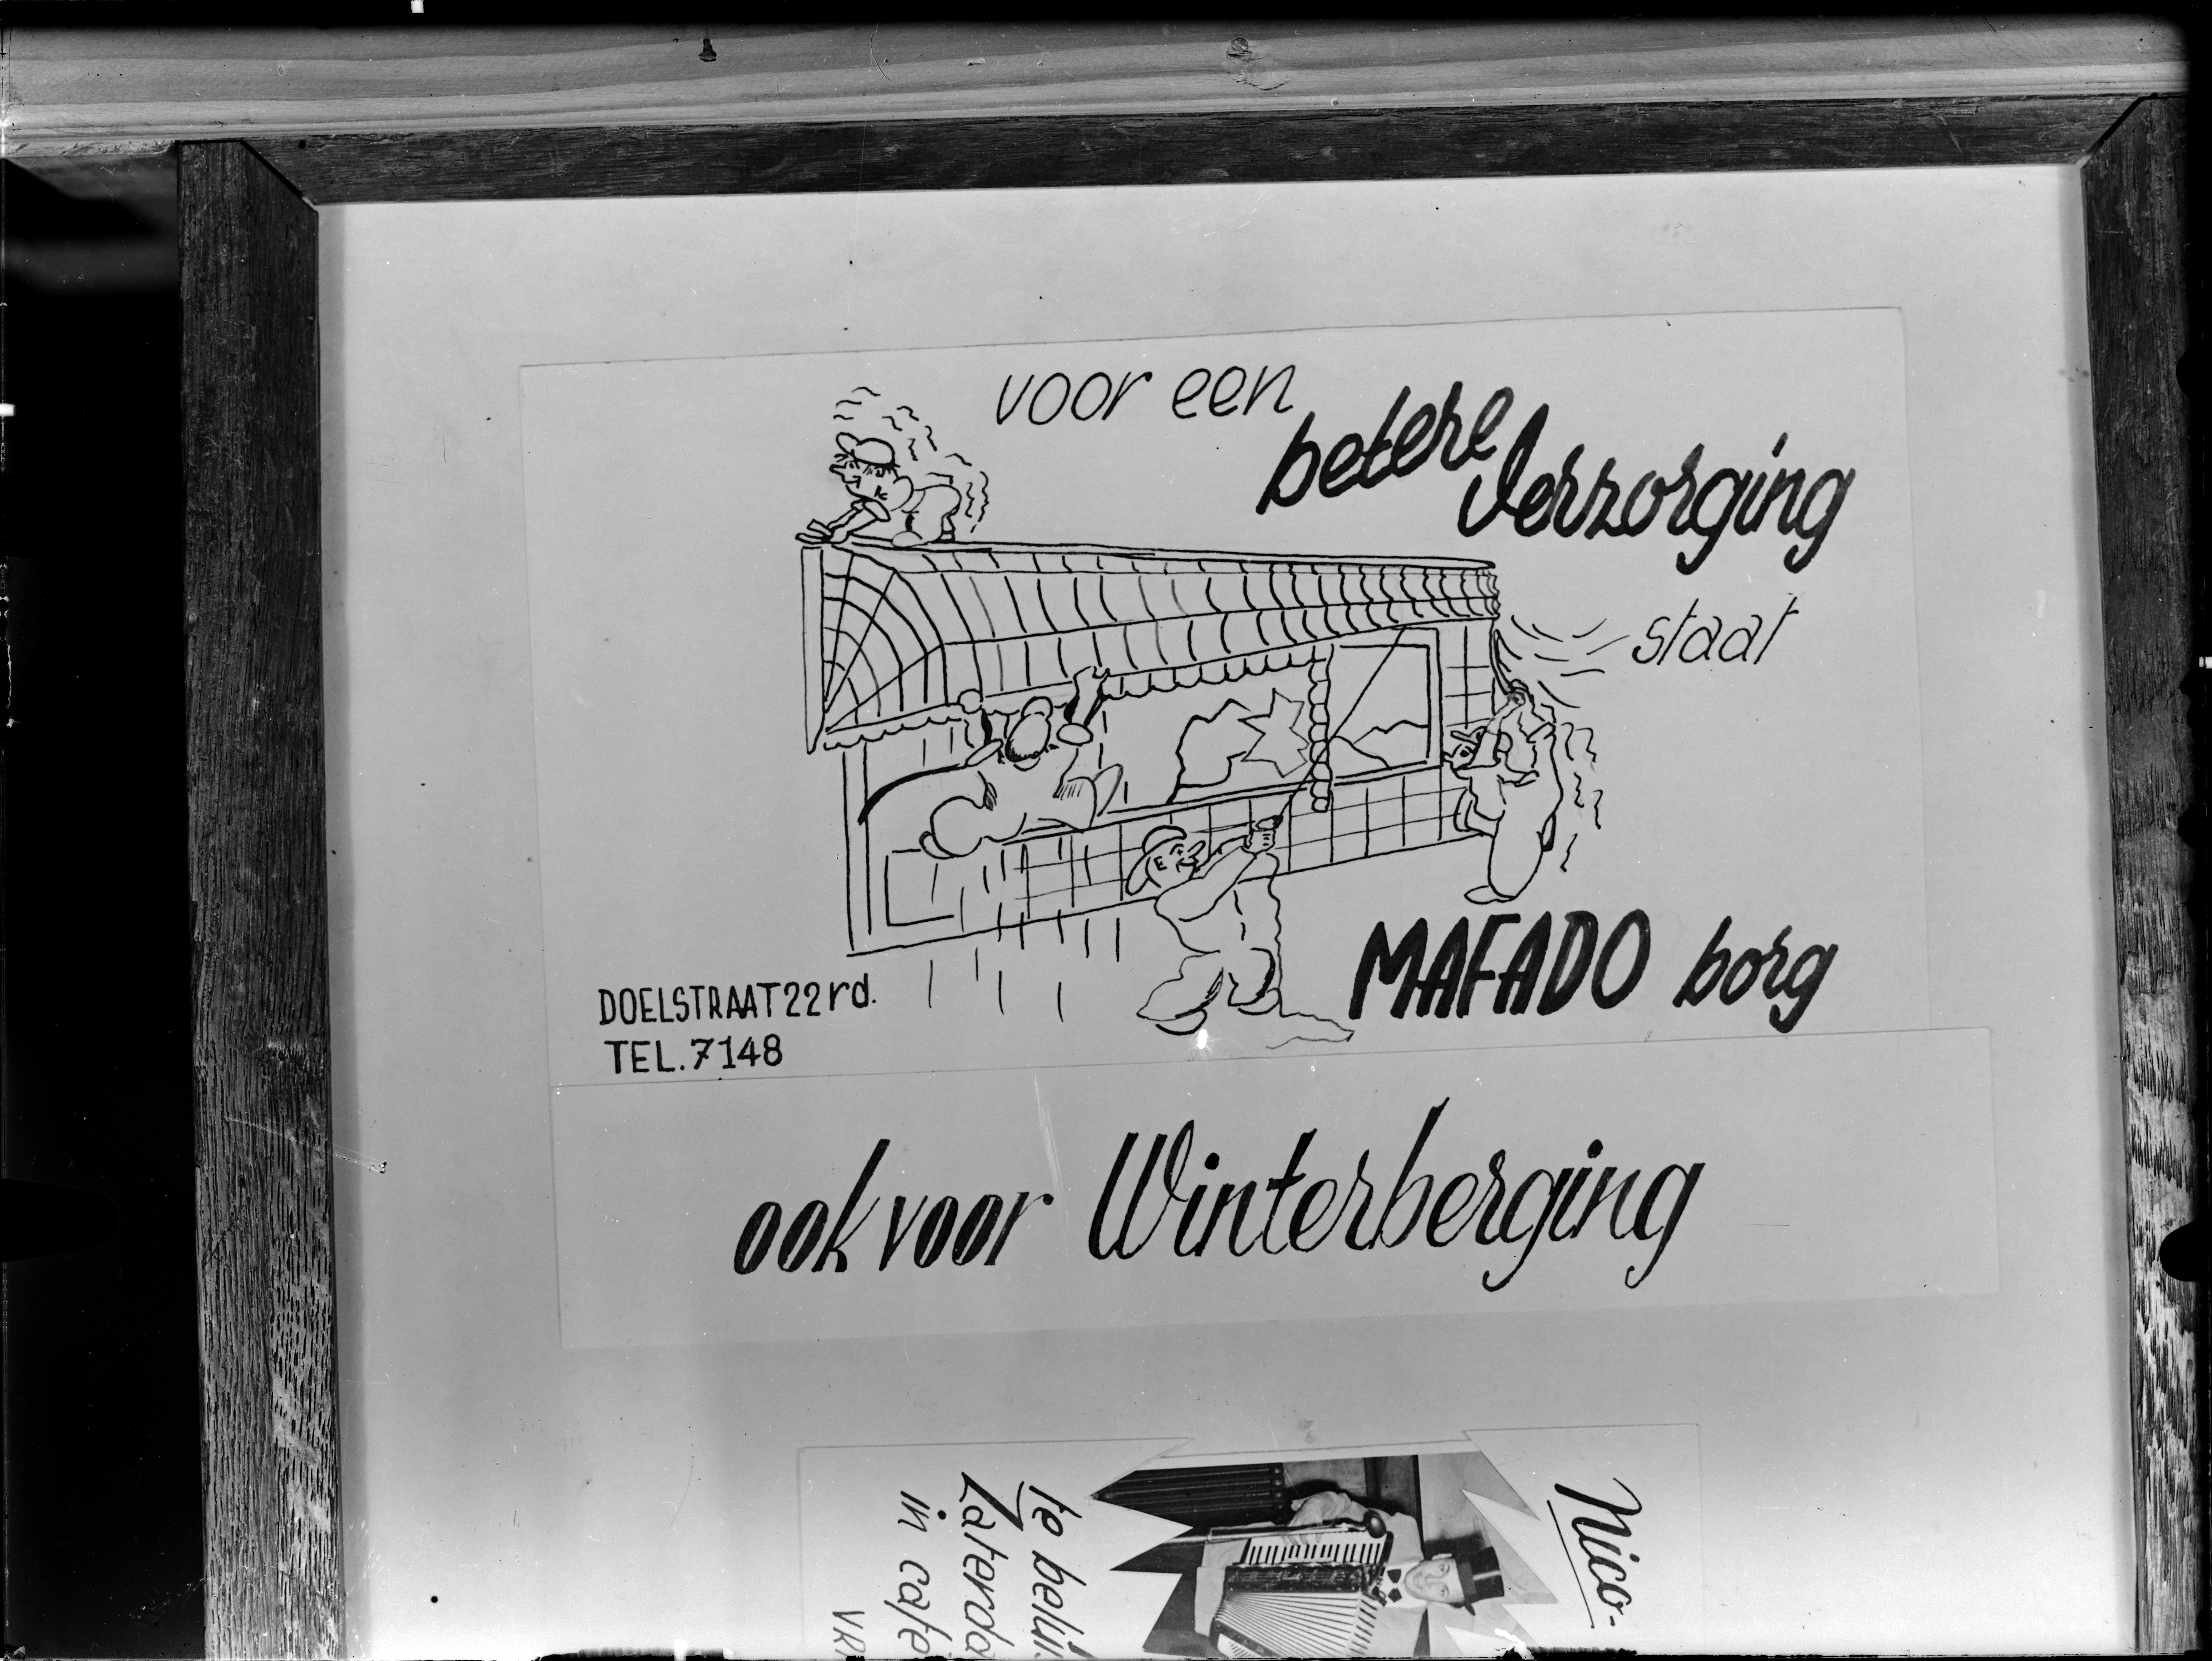 voor een
betere
Verzorging
staat
MAFADO borg
DOELSTRAAT 22rd.
TEL. 7148
ook voor Winterberging
Nico-
in cafe